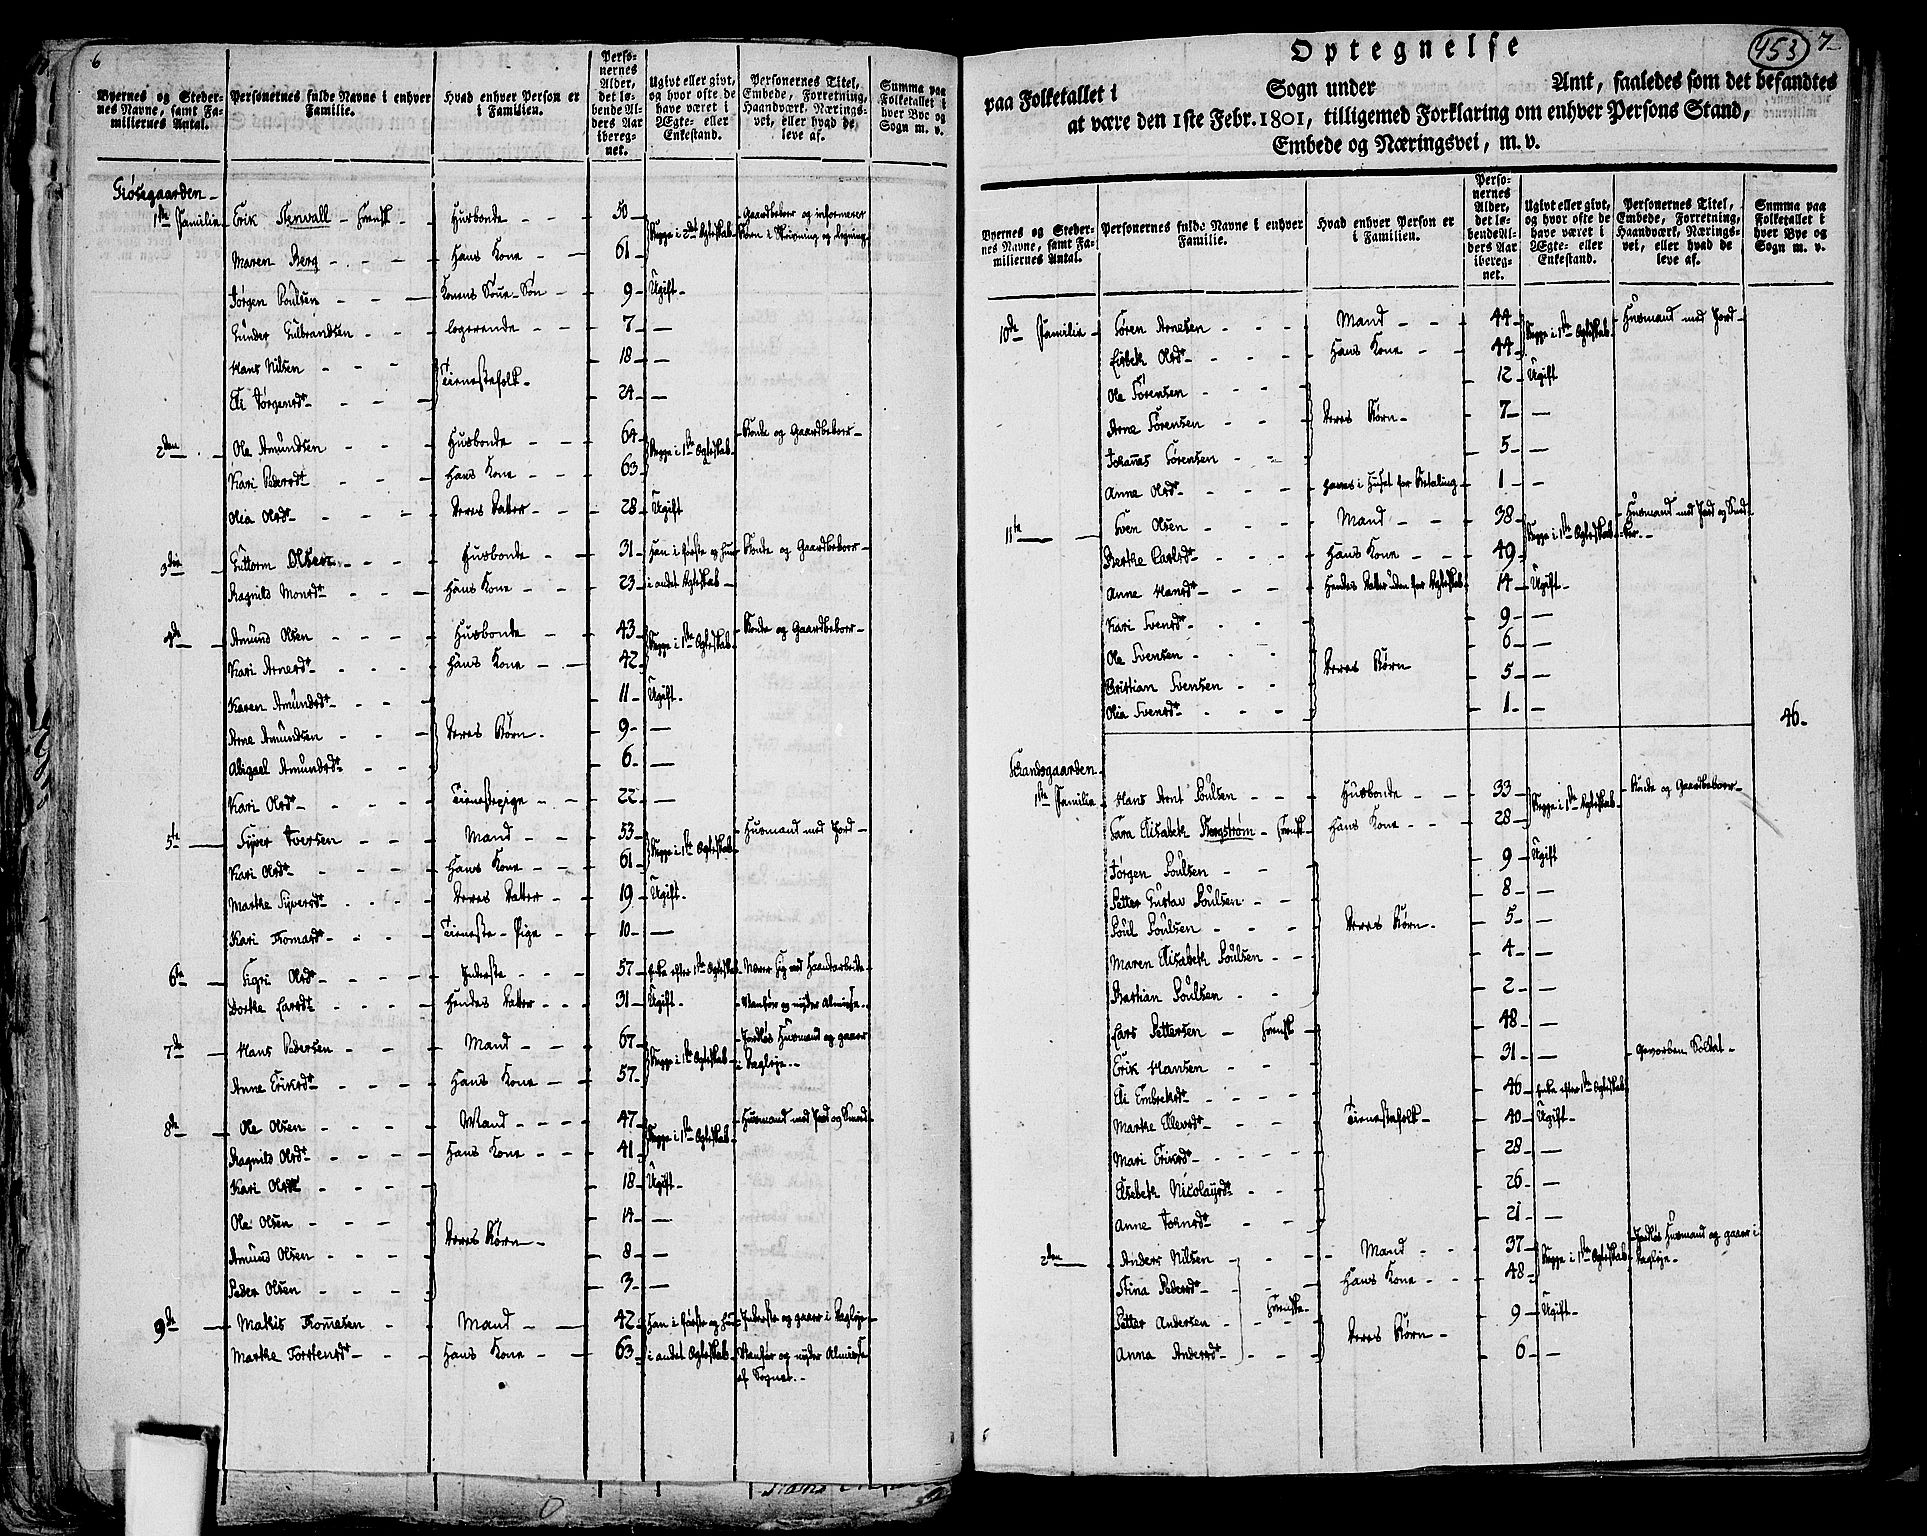 6
Byernes og Steder-
nes Navne, samt Fa-
miliernes Antal.
Personernes fulde Navne i enhver
Familie.
Hvad enhver Person er
i Familien.
Perso-
nernes
Alder,
det lø-
bende Al-
ders Aar
ibereg-
net.
Ugivt eller givt,
og hvor ofte de
have været i
Ægte- eller
Enkestand.
Personernes Titel,
Embede, Forretning,
Haandværk, Nærings-
vei, eller hvad de
leve af.
Summa paa
Folketallet i
hver Bye og
Sogn m. v.
1ste Familie Erik Stenvall - Svensk - Husbonde - 50 - Begge i 2det Ægteskab Gaardbeboer og informerer
Børn i Skrivning og Regning
Maren Berg - Hans Kone - 61
Jørgen Poulsen - Konens Søne-Søn - 9 - Ugift -
Gunder Gulbrandsen - logerende - 7 -
Hans Nilsen - Tienestefolk - 18 -
Eli Jørgensdt - 24 -
2den Ole Amundsen - Husbonde - 64 - Begge i 1ste Ægteskab - Bonde og Gaardbeboer -
Kari Pedersdt - Hans Kone - 63
Olia Olsdt - Deres Datter - 28 Ugift
3die Guttorm Olsen - Husbonde - 31 - Han i første og hun Bonde og Gaardbeboer -
Ragnild Monsdt - Hans Kone - 23 i andet Ægteskab -
4de Amund Olsen - Husbonde - 43 - Begge i 1ste Ægteskab - Bonde og Gaardbeboer -
Kari Arnesdt - Hans Kone - 42
Karen Amundsdt - 11 - Ugift -
Arne Amundsen - Deres Børn - 9 -
Abigael Amundsdt - 6 -
Kari Olsdt - Tienestepige - 22 -
5te Syver Iversen - Mand - 53 - Begge i 1ste Ægteskab Husmand med Jord -
Kari Olsdt - Hans Kone - 61
Marthe Syversdt - Deres Datter - 19 - Ugift -
Kari Tomasdt - Tieneste-Pige - 10 -
6te Sigri Olsdt - Inderste - 57 - Enke efter 1ste Ægteskab Nærer sig ved Haandarbeide -
Dorthe Larsdt - Hendes Datter - 31 - Ugift - Vanfør og nyder Almisse -
7de Hans Pedersen - Mand - 67 - Begge i 1ste Ægteskab - Jordløs Husmand og gaaer
i Dagleje -
Anne Eriksdt - Hans Kone - 57
8de Ole Olsen - Mand - 47 - Begge i 1ste Ægteskab Husmand med Jord og Smed
Ragnild Olsdt - Hans Kone - 41
Kari Olsdt - 18 - Ugift -
Ole Olsen - 14 -
Amund Olsen - Deres Børn - 8 -
Peder Olsen - 3 -
9de Mathis Tomesen - Mand - 42 - Han i første og hun Inderste og gaaer i Dagleje -
Marthe Torstensdt - Hans Kone - 63 - i andet Ægteskab - Vanfør og nyder Almisse
af Sognet. -
453 7
Optegnelse
paa Folketallet i Sogn under Amt, saaledes som det befandtes
at være den 1ste Febr. 1801, tilligemed Forklaring om enhver Persons Stand,
Embede og Næringsvei, m. v.
Byernes og Steder-
nes Navne, samt Fa-
miliernes Antal.
Personernes fulde Navne i enhver
Familie.
Hvad enhver Person er
i Familien.
Perso-
nernes
Alder,
det lø-
bende Al-
ders Aar
ibereg-
net.
Ugivt eller givt,
og hvor ofte de
have været i
Ægte- eller
Enkestand.
Personernes Titel,
Embede, Forretning,
Haandværk, Nærings-
vei, eller hvad de
leve af.
Summa paa
Folketallet i
hver Bye og
Sogn m. v.
10de Familie Søren Arnesen - Mand - 44 - Begge i 1ste Ægteskab Husmand med Jord -
Lisbeth Olsdt - Hans Kone - 44
Ole Sørensen - 12 - Ugift
Arne Sørensen - Deres Børn - 7 -
Johannes Sørensen - 5 -
Anne Olsdt - haves i Huset for Betaling - 1 -
11te Sven Olsen - Mand - 38 - Begge i 1ste Ægteskab Husmand med Jord og Sned-
ker. -
Berthe Carlsdt - Hans Kone - 49
Anne Hansdt - Hendes Datter uden for Ægteskab - 14 - Ugift -
Kari Svensdt - 9 -
Ole Svensen - Deres Børn 6 -
Christian Svensen - 5 -
Olia Svensdt - 1 -
46 -
Strandsgaarden -
1ste Familie Hans Arnt Poulsen - Husbonde - 33 - Begge i 1ste Ægteskab - Bonde og Gaardbeboer -
Sara Elisabeth Bergstrøm - Svensk - Hans Kone - 28
Jørgen Poulsen - 9 - Ugift
Petter Gustav Poulsen - 8 -
Poul Poulsen - Deres Børn - 5 -
Maren Elisabeth Poulsen - 4 -
Bastian Poulsen - 2 -
Lars Pettersen - Svensk - 48 -
Erik Hansen - 31 - Gevorben Soldat -
Eli Embretsdt - 46 - Enke efter 1ste Ægteskab
Marthe Ellevsdt - Tienestefolk - 40 - Ugift -
Mari Eriksdt - 28 -
Elsebeth Nicolaysdt - 26 -
Anne Johnsdt - 21 -
2den Anders Nilsen - Mand - 37 - Begge i 1ste Ægteskab Jordløs Husmand og gaaer i
Dagleje -
Stina Pedersdt - Svenske - Hans Kone - 48
Petter Andersen - Deres Børn - 9 - Ugift -
Anna Andersdt - 6 -